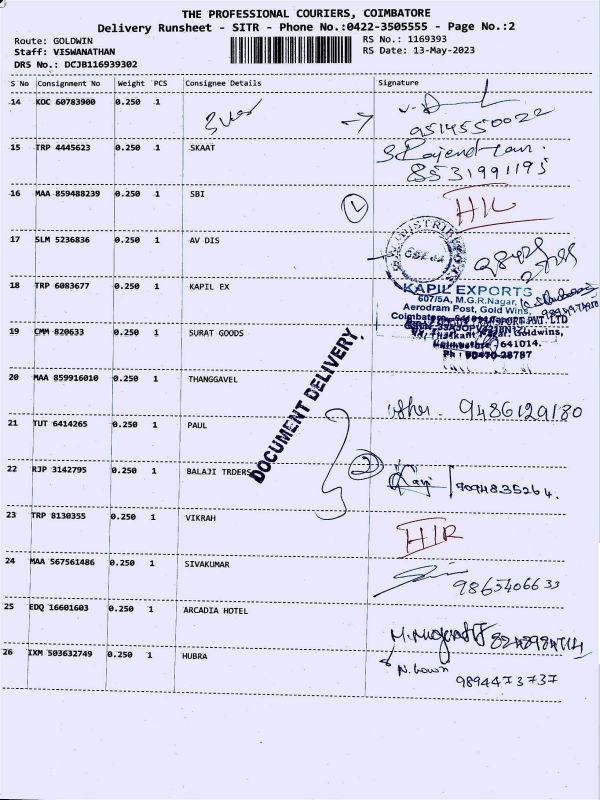 THE PROFESSIONAL COURIERS, COIMBATORE
Delivery Runsheet - SITR - Phone No.:0422-3505555 - Page No.:2
Route: GOLDWIN
RS No.: 1169393
Staff: VISWANATHAN
RS Date: 13-May-2023
DRS No.: DCJB116939302
S No Consignment No Weight PCS Consignee Details Signature
14 KOC 60783900 0.250 1
9514550022
15 TRP 4445623 0.250 1 SKAAT
8531991195
16 MAA 859488239 0.250 1 SBI
17 SLM 5236836 0.250 1 AV DIS
18 TRP 6083677 0.250 1 KAPIL EX
KAPIL EXPORTS
607/5A, M.G.R.Nagar,
Aerodram Post, Gold Wins,
19 CMM 820633 0.250 1 SURAT GOODS
641014.
Ph : 90470-28787
DOCUMENT DELIVERY
20 MAA 859916010 0.250 1 THANGGAVEL
9486129180
21 TUT 6414265 0.250 1 PAUL
22 RJP 3142795 0.250 1 BALAJI TRDERS
2
7094835264.
23 TRP 8130355 0.250 1 VIKRAH
24 MAA 567561486 0.250 1 SIVAKUMAR
9865406633
25 EDQ 16601603 0.250 1 ARCADIA HOTEL
26 IXM 503632749 0.250 1 HUBRA
9894473737